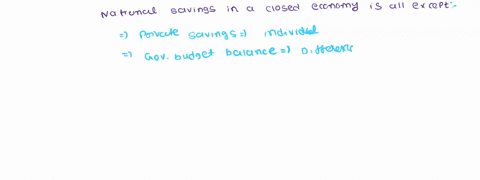 National savings in a closed economy is all except:-
=) Private savings=) individual
=) Gov. budget balance=) Differenc